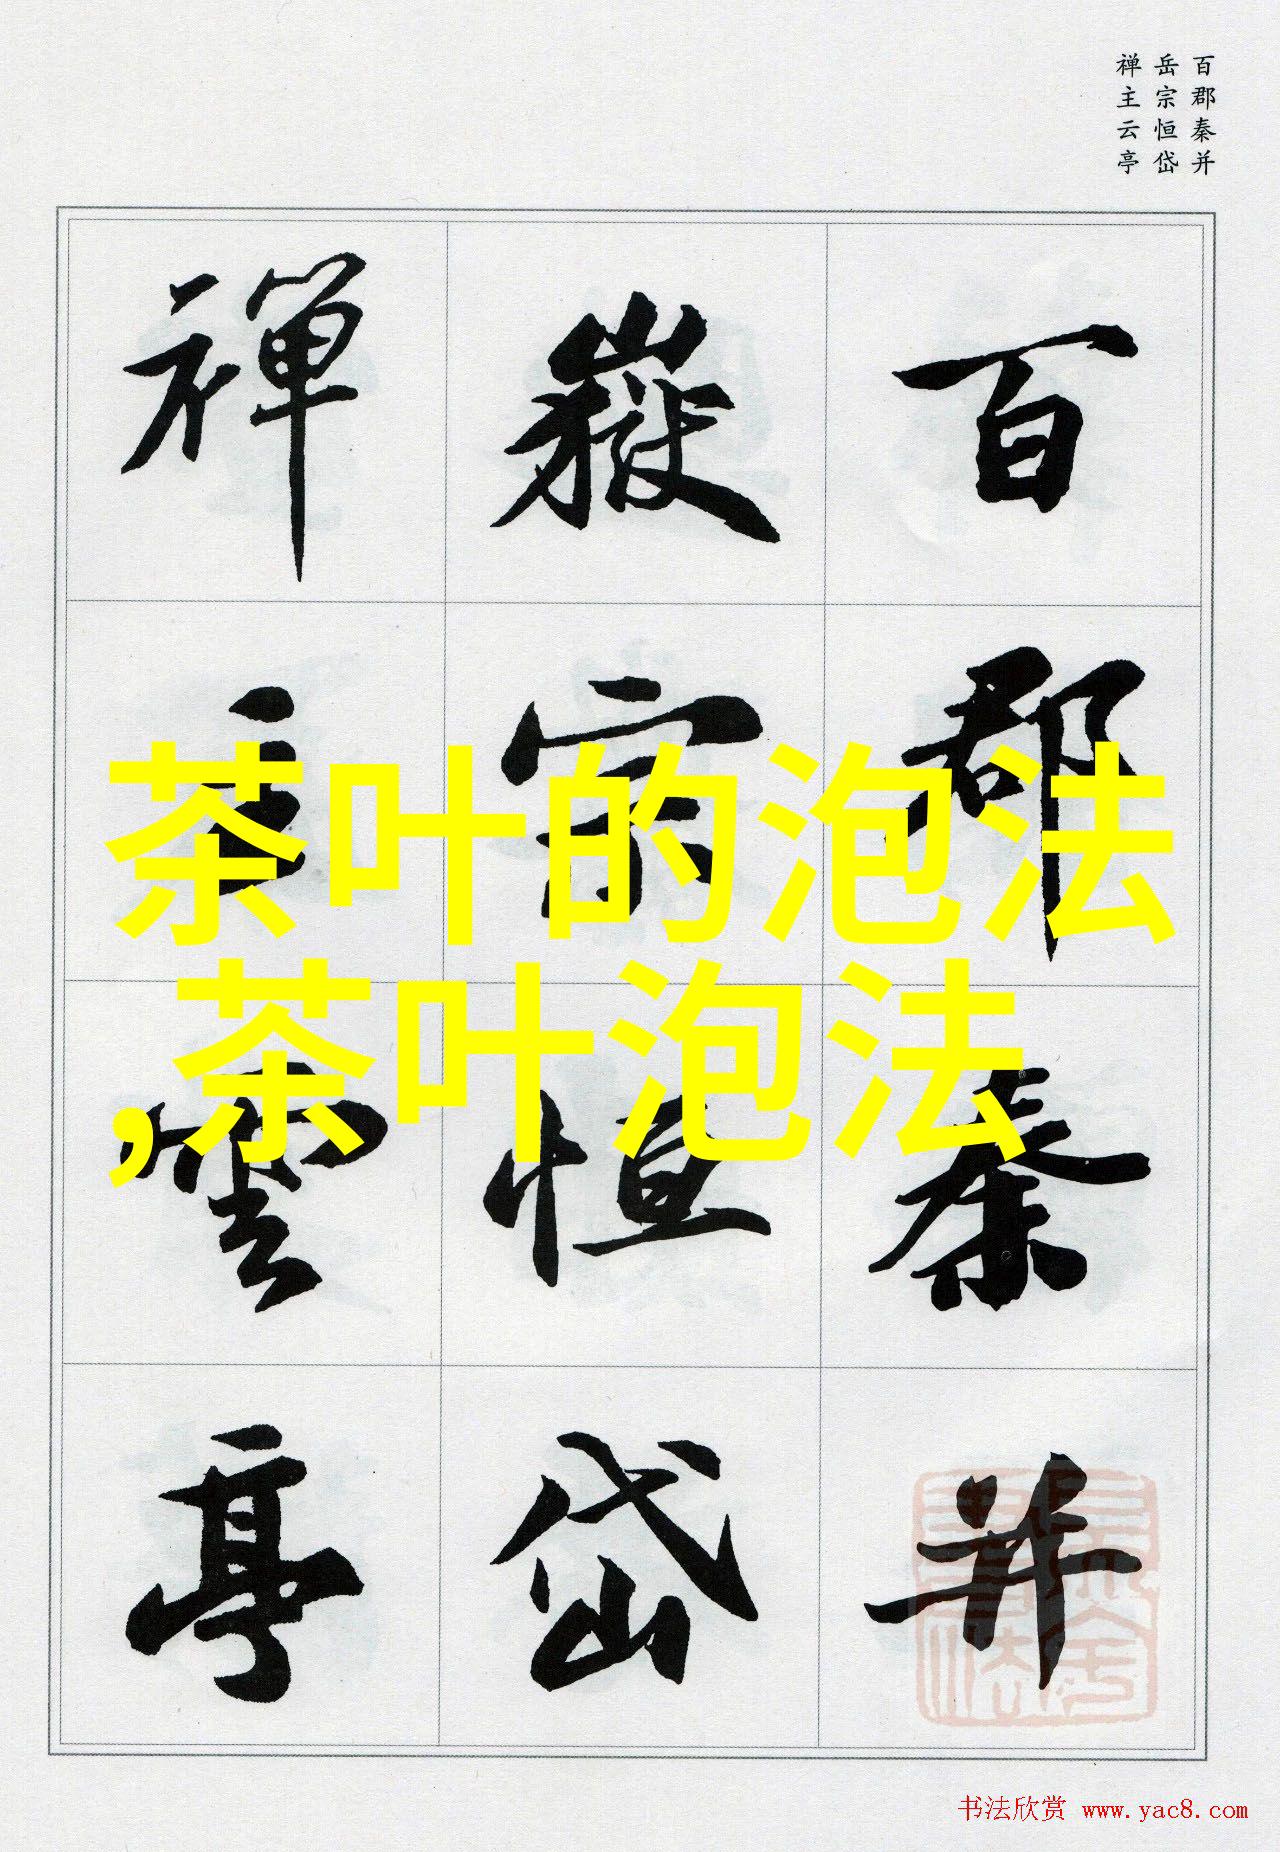 百郡秦并
岳宗恒岱
禅主云亭
百郡秦并
嶽宗恒岱
禅主雲亭
茶叶的泡法
,茶叶泡法
书法欣赏 www.yac8.com